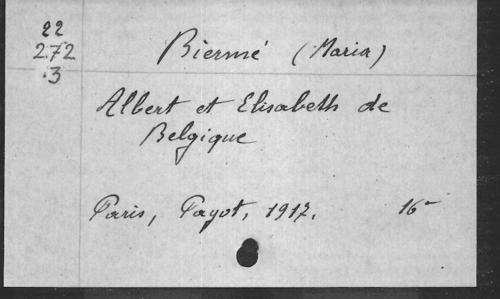 22
272
.3
Biermé (Maria)
Albert et Elisabeth de
Belgique
Paris, Payot, 1917. 16°